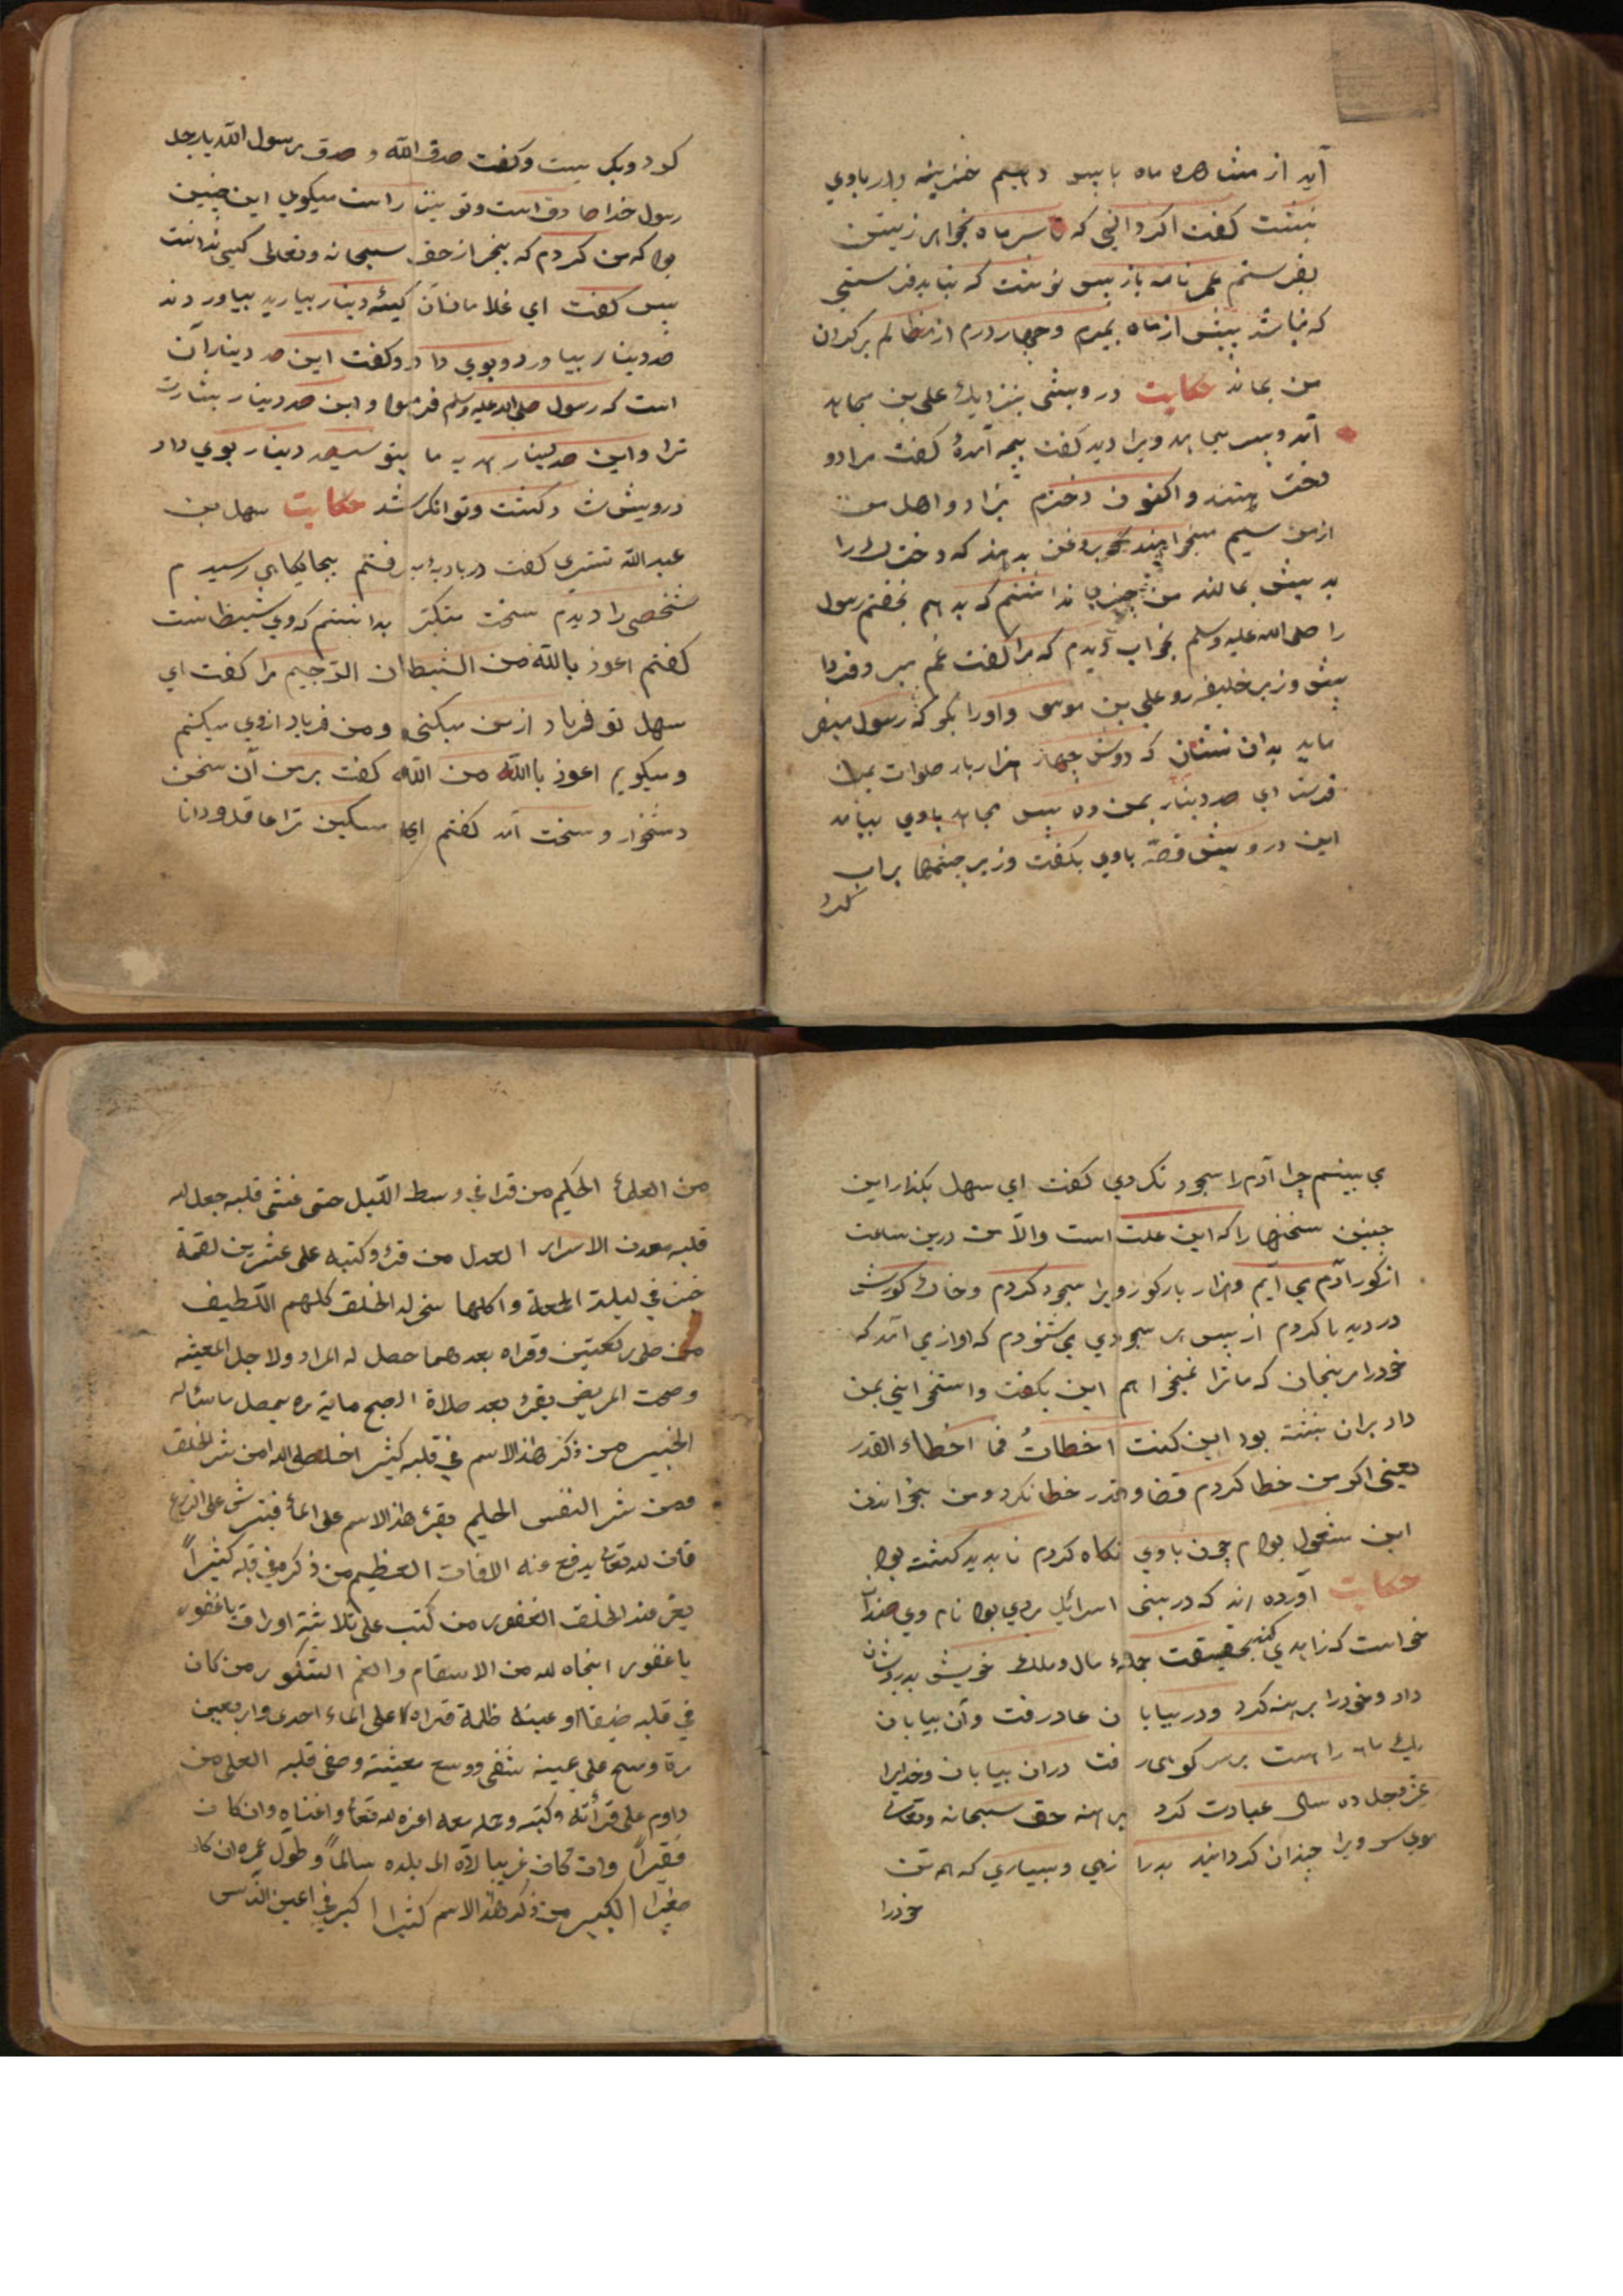 آید از مشاهره ماه با پس دهیم خزینه دار باوی
نبشت کفت اکر دانی که تا سر ماه بخواهم زیستن
بفرستم عمر نامه باز پس نوشت که نباید فرستی
که نباشد پیش از ماه بمیرم و چهار درم از مظالم بر کردن
من بماند حکایت درویشی بنزدیك علی بن مجاهد
آمد و پسر مجاهد ویرا دید کفت بچه آمدۀ کفت مرا دو
دختر هستند و اکنون دخترم بزاد و اهل من
از من سیم میخواهند که روغن بدهند که دخترك را
بدیش بمالند من چیزی نداشتم که بدهم بخفتم رسول
را صلی الله علیه وسلم بخواب دیدم که مرا کفت غم مبر و فردا
پیش وزیر خلیفه رو علی بن موسی و او را بکو که رسول میفر
ماید بدان نشان که دوش چهار هزار بار صلوات بمن
فرستادی صد دینار بمن ده پس مجاهد باوی بیامد
این درویش قصّه باوی بکفت وزیر چشمها پر آب
کرد
کرد و بکریست وکفت صدق الله و صدق رسول الله یا رجل
رسول خدا صادق است و تو نیز راست میکوی این چنین
بود که من کردم که بجز از حق سبحانه وتعالی کسی ندانست
پس کفت ای غلامان آن کیسۀ دینار بیارید بیاوردند
صد دینار بیاورد و بوی داد و کفت این صد دینار آن
است که رسول صلی الله علیه وسلم فرمود و این صد دینار بشارت
ترا و این صد دینار هدیه ما بتو سیصد دینار بوی داد
درویش شاد کشت و توانکر شد حکایت سهل بن
عبد الله تستری کفت در بادیه میرفتم بجایکاهی رسیدم
شخصی را دیدم سخت متکبّر بدانستم که وی شیطانست
کفتم اعوذ بالله من الشیطان الرّجیم مرا کفت ای
سهل تو فریاد از من میکنی و من فریاد از وی میکنم
و میکویم اعوذ باالله من الله کفت بر من آن سخن
دشخوار و سخت آمد کفتم ای مسکین ترا عاقل و دانا
می بینم چرا آدم را سجود نکردی کفت ای سهل بکذار این
چنین سخنها را که این علت است والّا من درین ساعت
از کور آدم می آیم و هزار بار کور ویرا سجود کردم و خاك کورش
در دیدها کردم از پس هر سجودی می شنودم که اوازی آمد که
خود را مرنجان که ما ترا نمیخواهم این بکفت و استخوانی بمن
داد بران نبشته بود این کنت اخطاتُ فما اخطاء القدر
یعنی اکر من خطا کردم قضا و قدر خطا نکرد و من بخواندن
این مشغول بودم چون باوی نکاه کردم ناپدید کشته بود
حکایت آورده اند که در بنی اسرائیل مردی بود نام وی صندل
خواست که زاهدی کند بحقیقت جملۀ مال و ملك خویش بدرویشان
داد و خود را برهنه کرد و در بیابان عاد رفت و آن بیابان
یك ماهه راهست بر سر کوهی رفت دران بیابان و خدایرا
عزّ وجل ده سال عبادت کرد برهنه حق سبحانه وتعالی
موی سر ویرا چندان کردانید بدرازی و بسیاری که همه تن
خود را
من العلماء الحکیم من قراه فی وسط اللّیل حتی غشی قلبه جعل الله
قلبه معدن الاسرار العدل من قرء وکتبه علی عشرین لقمة
خبز فی لیلة الجمعة واکلها سخر له الخلق کلهم اللّطیف
من صلی رکعتین وقراه بعدهما حصل له المراد ولاجل المعیشه
وصحت المریض یقرء بعد صلاة الصبح مایة مره یحصل ماسئاله
الخبیر من ذکر هذا الاسم فی قلبه کثیر اخلصه الله من شر الخلق
ومن شر النفس الحلیم یقرء هذا الاسم علی الماء فیترش علی الزرع
فان الله تعالی یدفع عنه الافات العظیم من ذکره فی قلبه کثیراً
یعز عند الخلق الغفور من کتب علی ثلاثة اوراق یاغفور
یا غفور انجاه الله من الاسقام والغم الشکور من کان
فی قلبه ضیقا او عینه ظلمة قراه علی الماء احدی واربعین
مرة ومسح علی عینه شفی ووسع معیشة وصفی قلبه العلی من
داوم علی قرأته وکتبه وحمله معه اعزه الله تعالی واغناه وان کان
فقیراً وان کان غریبا ردّه الی بلده سالماً وطول عمره ان کان
صغیرا الکبیر من ذکر هذا الاسم کثیرا کبر فی اعین النّاس